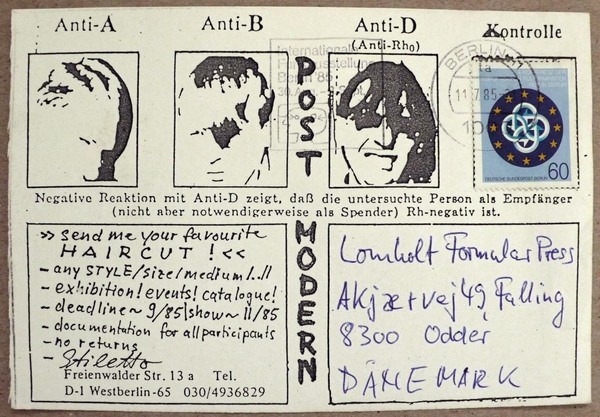 Anti-A Anti-B Anti-D Kontrolle
(Anti-Rho)
Internationale
Funkausstellung
Berlin '85
BERLIN
11.7.85
DEUTSCHE BUNDESPOST BERLIN 60
POST
MODERN
Negative Reaktion mit Anti-D zeigt, daß die untersuchte Person als Empfänger
(nicht aber notwendigerweise als Spender) Rh-negativ ist.
>> send me your favourite
HAIRCUT! <<
- any STYLE/size/medium/..//
- exhibition! events! catalogue!
- deadline ~ 9/85 | show ~ 11/85
- documentation for all participants
- no returns
- Stiletto
Freienwalder Str. 13 a Tel.
D-1 Westberlin-65 030/4936829
Lomholt Formular Press
Akjærvej 49, Falling
8300 Odder
DÄNEMARK